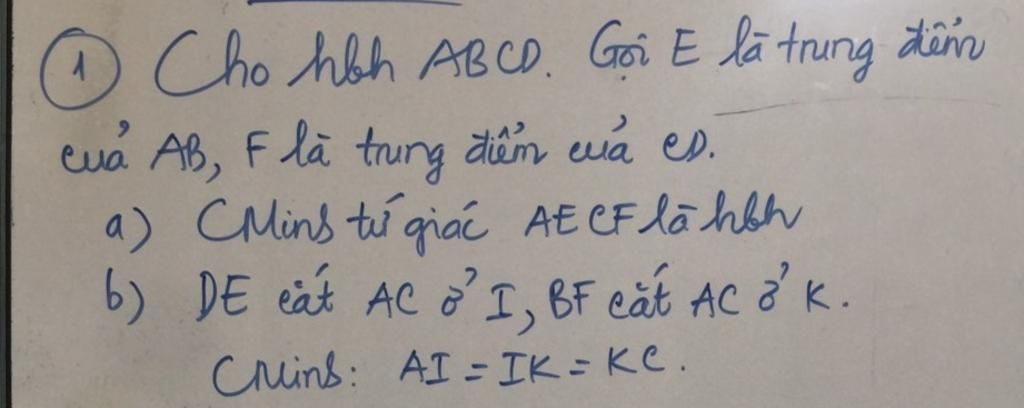 ① Cho hbh ABCD. Gọi E là trung điểm
của AB, F là trung điểm của CD.
a) CMinh tứ giác AECF là hbh
b) DE cắt AC ở I, BF cắt AC ở K.
CMinh: AI = IK = KC.